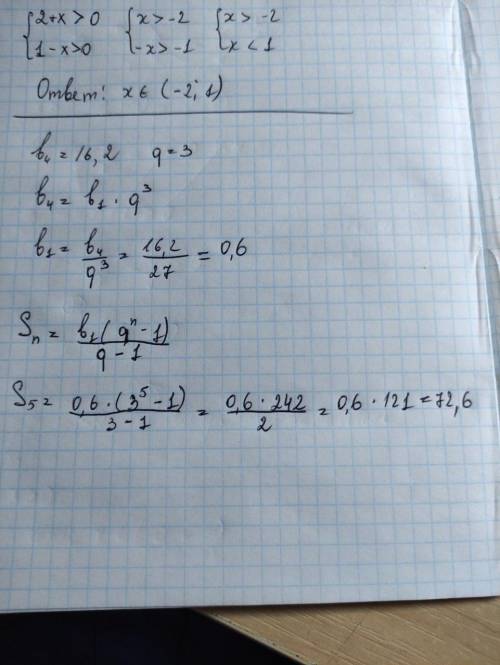 {2+x>0 {x>-2 {x>-2
{1-x>0 {-x>-1 {x<1
Ответ: x ∈ (-2; 1)
b₄ = 16,2 q = 3
b₄ = b₁ · q³
b₁ = b₄/q³ = 16,2/27 = 0,6
Sₙ = b₁(qⁿ-1)/(q-1)
S₅ = 0,6·(3⁵-1)/(3-1) = 0,6·242/2 = 0,6·121 = 72,6